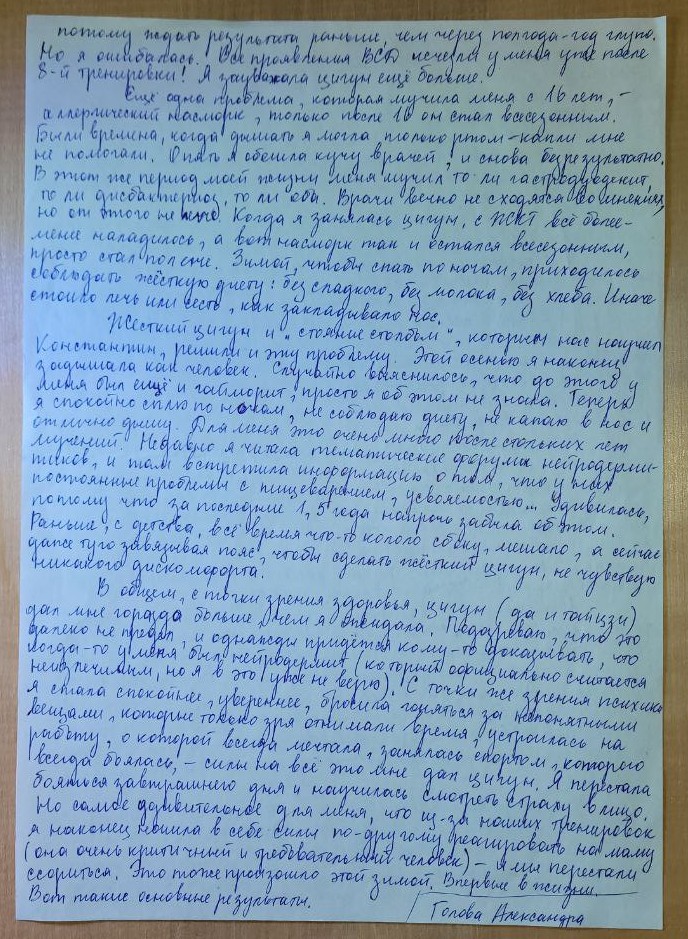 потому ждать результата раньше, чем через полгода-год глупо.
Но я ошибалась. Все проявления ВСД исчезли у меня уже после
8-й тренировки! Я зауважала цигун ещё больше.
Ещё одна проблема, которая мучила меня с 16 лет, –
аллергический насморк, только после 18 он стал всесезонным.
Были времена, когда дышать я могла только ртом – капли мне
не помогали. Опять я обошла кучу врачей, и снова безрезультатно.
В этот же период моей жизни меня мучил то ли гастродуоденит,
то ли дисбактериоз, то ли оба. Врачи вечно не сходятся во мнениях,
но от этого не легче. Когда я занялась цигун, с ЖКТ всё более-
менее наладилось, а вот насморк так и остался всесезонным,
просто стал полегче. Зимой, чтобы спать по ночам, приходилось
соблюдать жёсткую диету: без сладкого, без молока, без хлеба. Иначе
стоило лечь или сесть, как закладывало нос.
Жёсткий цигун и „стояние столбом", которым нас научил
Константин, решили и эту проблему. Этой осенью я наконец
задышала как человек. Случайно выяснилось, что до этого у
меня был ещё и гайморит, просто я об этом не знала. Теперь
я спокойно сплю по ночам, не соблюдаю диету, не капаю в нос и
отлично дышу. Для меня это очень много после стольких лет
мучений. Недавно я читала тематические форумы нейродерми-
тиков, и там встретила информацию о том, что у них
постоянные проблемы с пищеварением, усвояемостью... Удивилась,
потому что за последние 1,5 года напрочь забыла об этом.
Раньше, с детства, всё время что-то кололо сбоку, мешало, а сейчас
даже туго завязывая пояс, чтобы сделать жёсткий цигун, не чувствую
никакого дискомфорта.
В общем, с точки зрения здоровья, цигун (да и тайцзи)
дал мне гораздо больше, чем я ожидала. Подозреваю, что это
далеко не предел, и однажды придётся кому-то доказывать, что
когда-то у меня был нейродермит (который официально считается
неизлечимым, но я в это уже не верю). С точки же зрения психики
я стала спокойнее, увереннее, бросила гоняться за непонятными
вещами, которые только зря отнимали время, устроилась на
работу, о которой всегда мечтала, занялась спортом, которого
всегда боялась, – силы на всё это мне дал цигун. Я перестала
бояться завтрашнего дня и научилась смотреть страху в лицо.
Но самое удивительное для меня, что из-за наших тренировок
я наконец нашла в себе силы по-другому реагировать на маму
(она очень критичный и требовательный человек) – и мы перестали
ссориться. Это тоже произошло этой зимой. Впервые в жизни.
Вот такие основные результаты.
Голова Александра